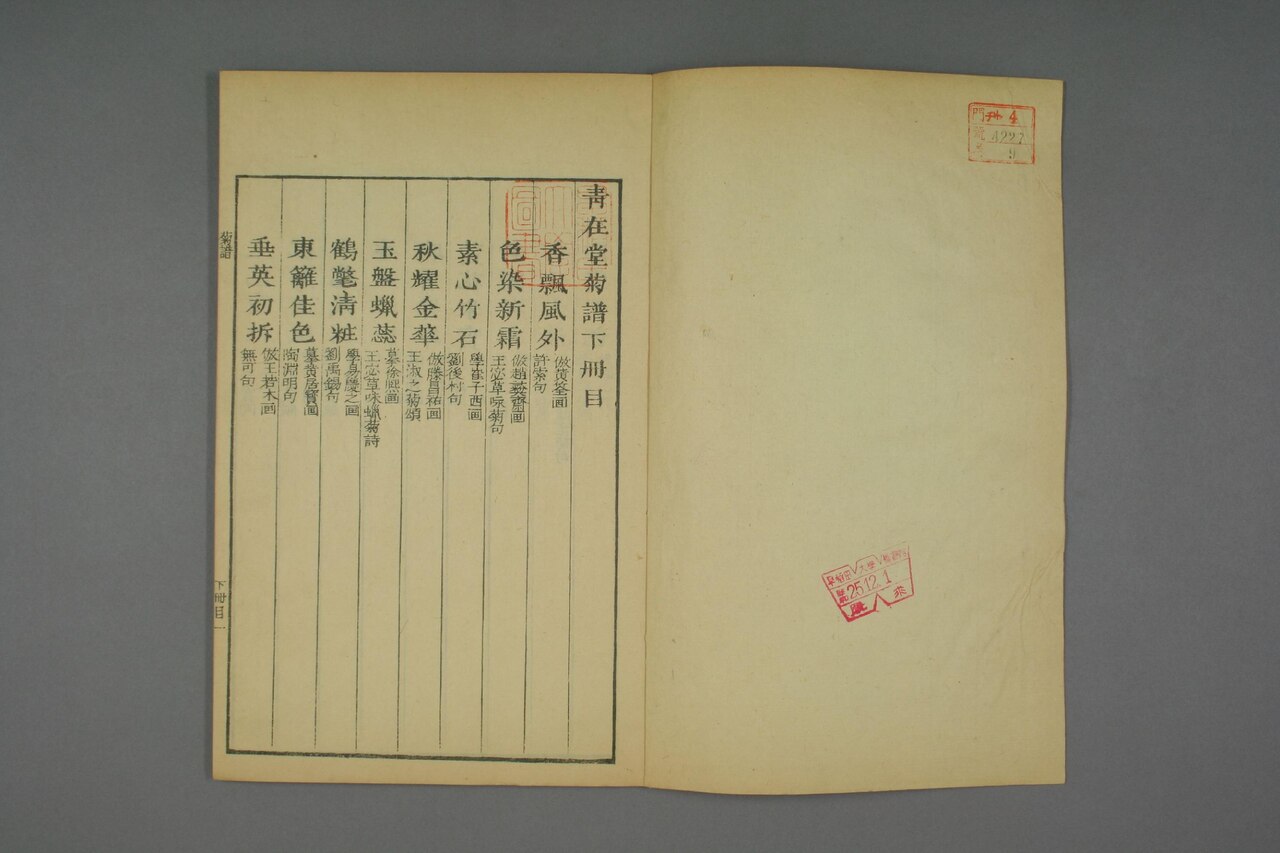 青在堂菊譜下冊目
香飄風外
倣黃筌画
許索句
色染新霜
倣趙彝齋画
王宓草咏菊句
素心竹石
學崔子西画
劉後村句
秋耀金華
倣滕昌祐画
王淑之菊頌
玉盤蠟蕊
摹徐熙画
王宓草咏蠟菊詩
鶴氅淸粧
學易慶之画
劉禹錫句
東籬佳色
摹黃居寶画
陶淵明句
垂英初拆
倣王若水画
無可句
菊譜
下冊目
一
門 4
號 4227
9
25.12.1